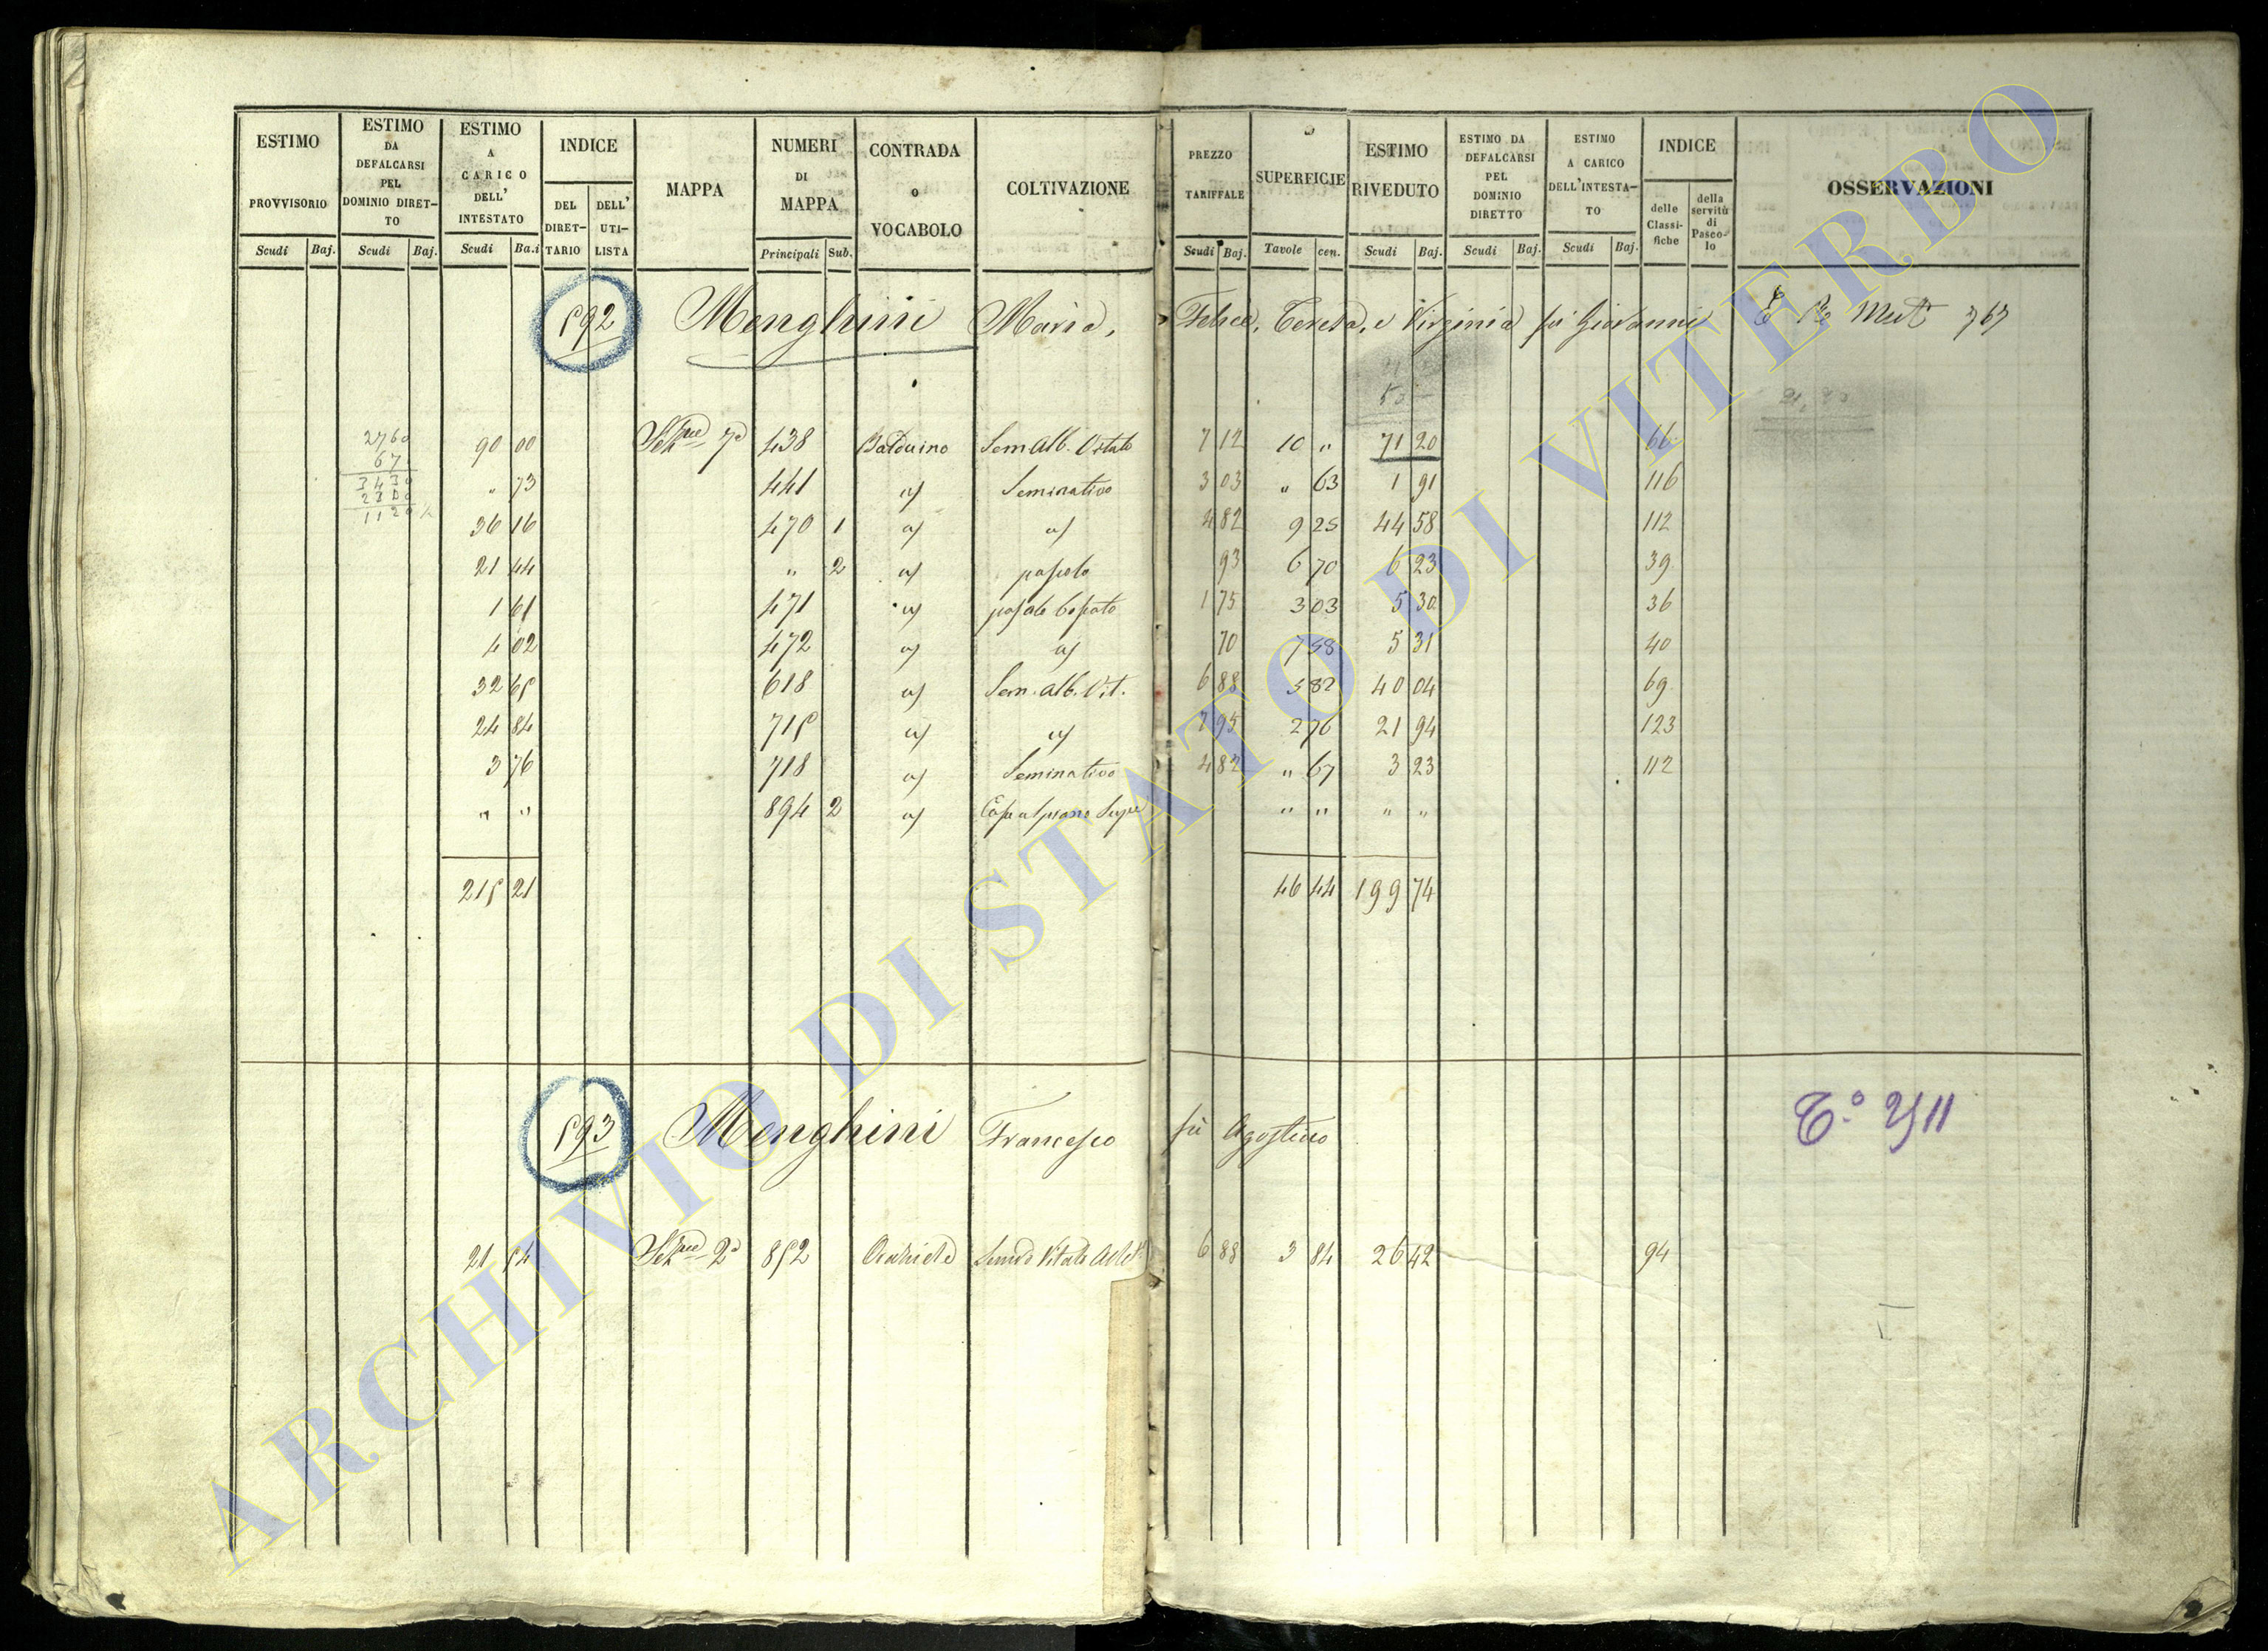 ESTIMO PROVVISORIO
ESTIMO DA DEFALCARSI PEL DOMINIO DIRET-TO
ESTIMO A CARICO DELL' INTESTATO
INDICE
DEL DIRET-TARIO
DELL' UTI-LISTA
MAPPA
NUMERI DI MAPPA
CONTRADA o VOCABOLO
COLTIVAZIONE
PREZZO TARIFFALE
SUPERFICIE
ESTIMO RIVEDUTO
ESTIMO DA DEFALCARSI PEL DOMINIO DIRETTO
ESTIMO A CARICO DELL'INTESTA-TO
INDICE
delle Classi-fiche
della servitù di Pasco-lo
OSSERVAZIONI
Scudi Baj. Scudi Baj. Scudi Ba.i Principali Sub. Scudi Baj. Tavole cen. Scudi Baj. Scudi Baj. Scudi Baj.
592 Menghini Maria, Felice, Teresa, e Virginia fù Giovanni 767
2760
67
3430
2300
1120
90 00 7a 438 Balduino Sem. Alb. Vitato 7 12 10 " 71 20 66
" 73 441 a/ Seminativo 3 03 " 63 1 91 116
36 16 470 1 a/ a/ 4 82 9 25 44 58 112
21 44 " 2 a/ pascolo 93 6 70 6 23 39
1 61 471 a/ 1 75 3 03 5 30 36
4 02 472 a/ a/ 70 7 58 5 31 40
32 65 618 a/ Sem. Alb. Vit. 6 88 5 82 40 04 69
24 84 715 a/ a/ 7 95 2 76 21 94 123
3 76 718 a/ Seminativo 4 82 " 67 3 23 112
" " 894 2 a/ " " " "
215 21 46 44 199 74
593 Menghini Francesco fù Agostino
21 54 2a 852 6 88 3 84 26 42 94
ARCHIVIO DI STATO DI VITERBO